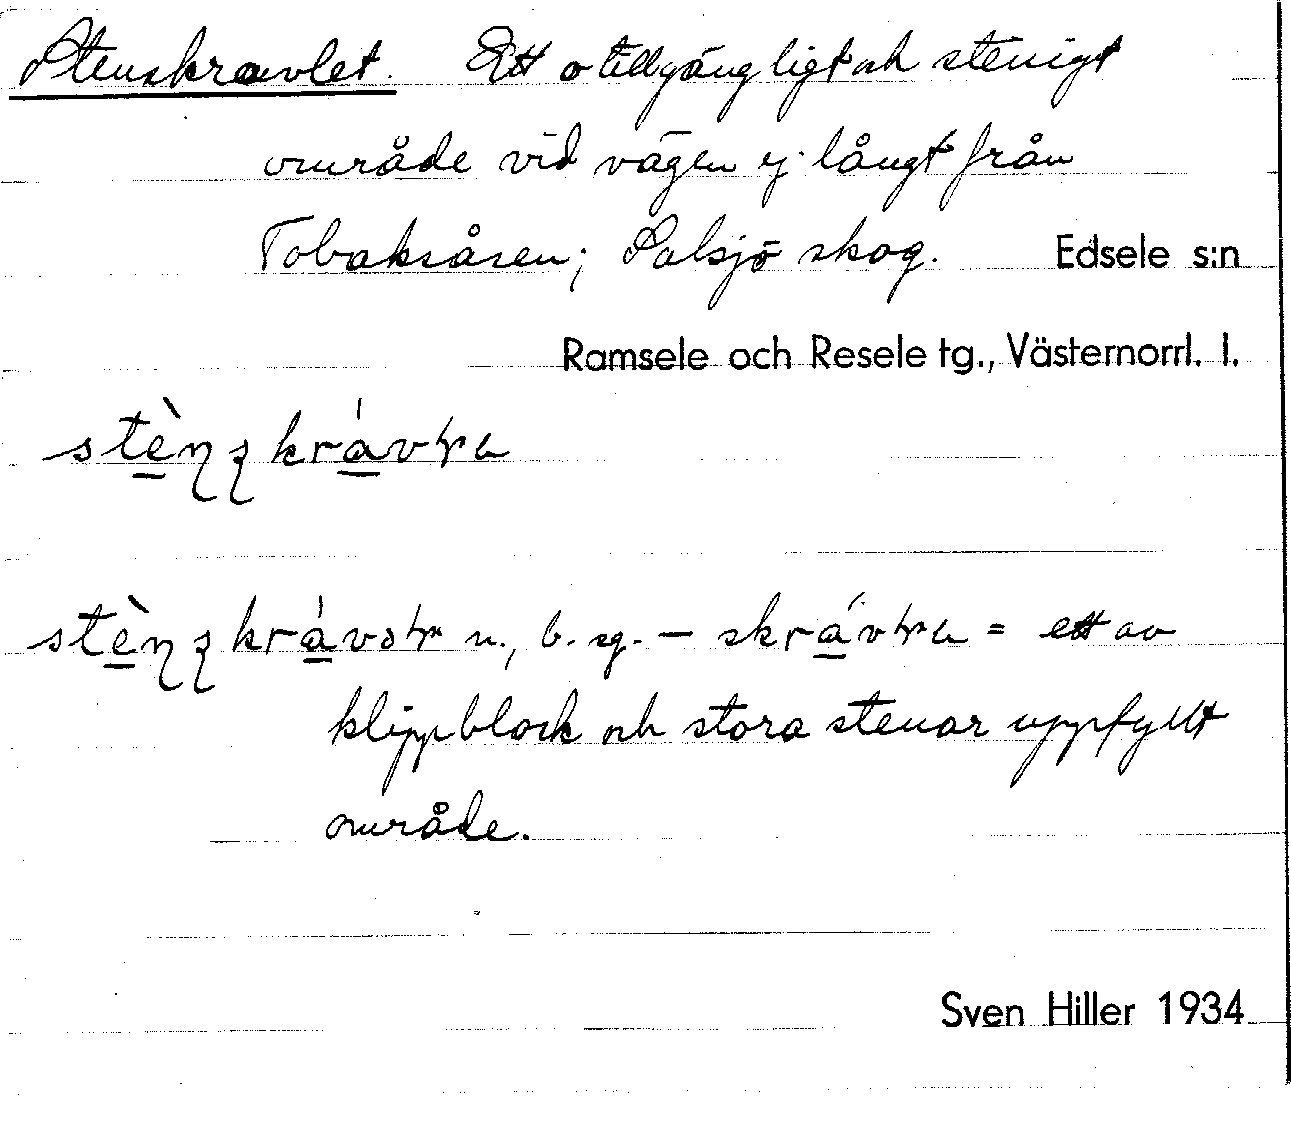 Stenskravlet. Ett otillgängligt och stenigt
område vid vägen ej långt från
Tobaksåsen; Salsjö skog. Edsele s:n
Ramsele och Resele tg., Västernorrl. l.
n., b. sg. — = ett av
klippblock och stora stenar uppfyllt
område.
Sven Hiller 1934